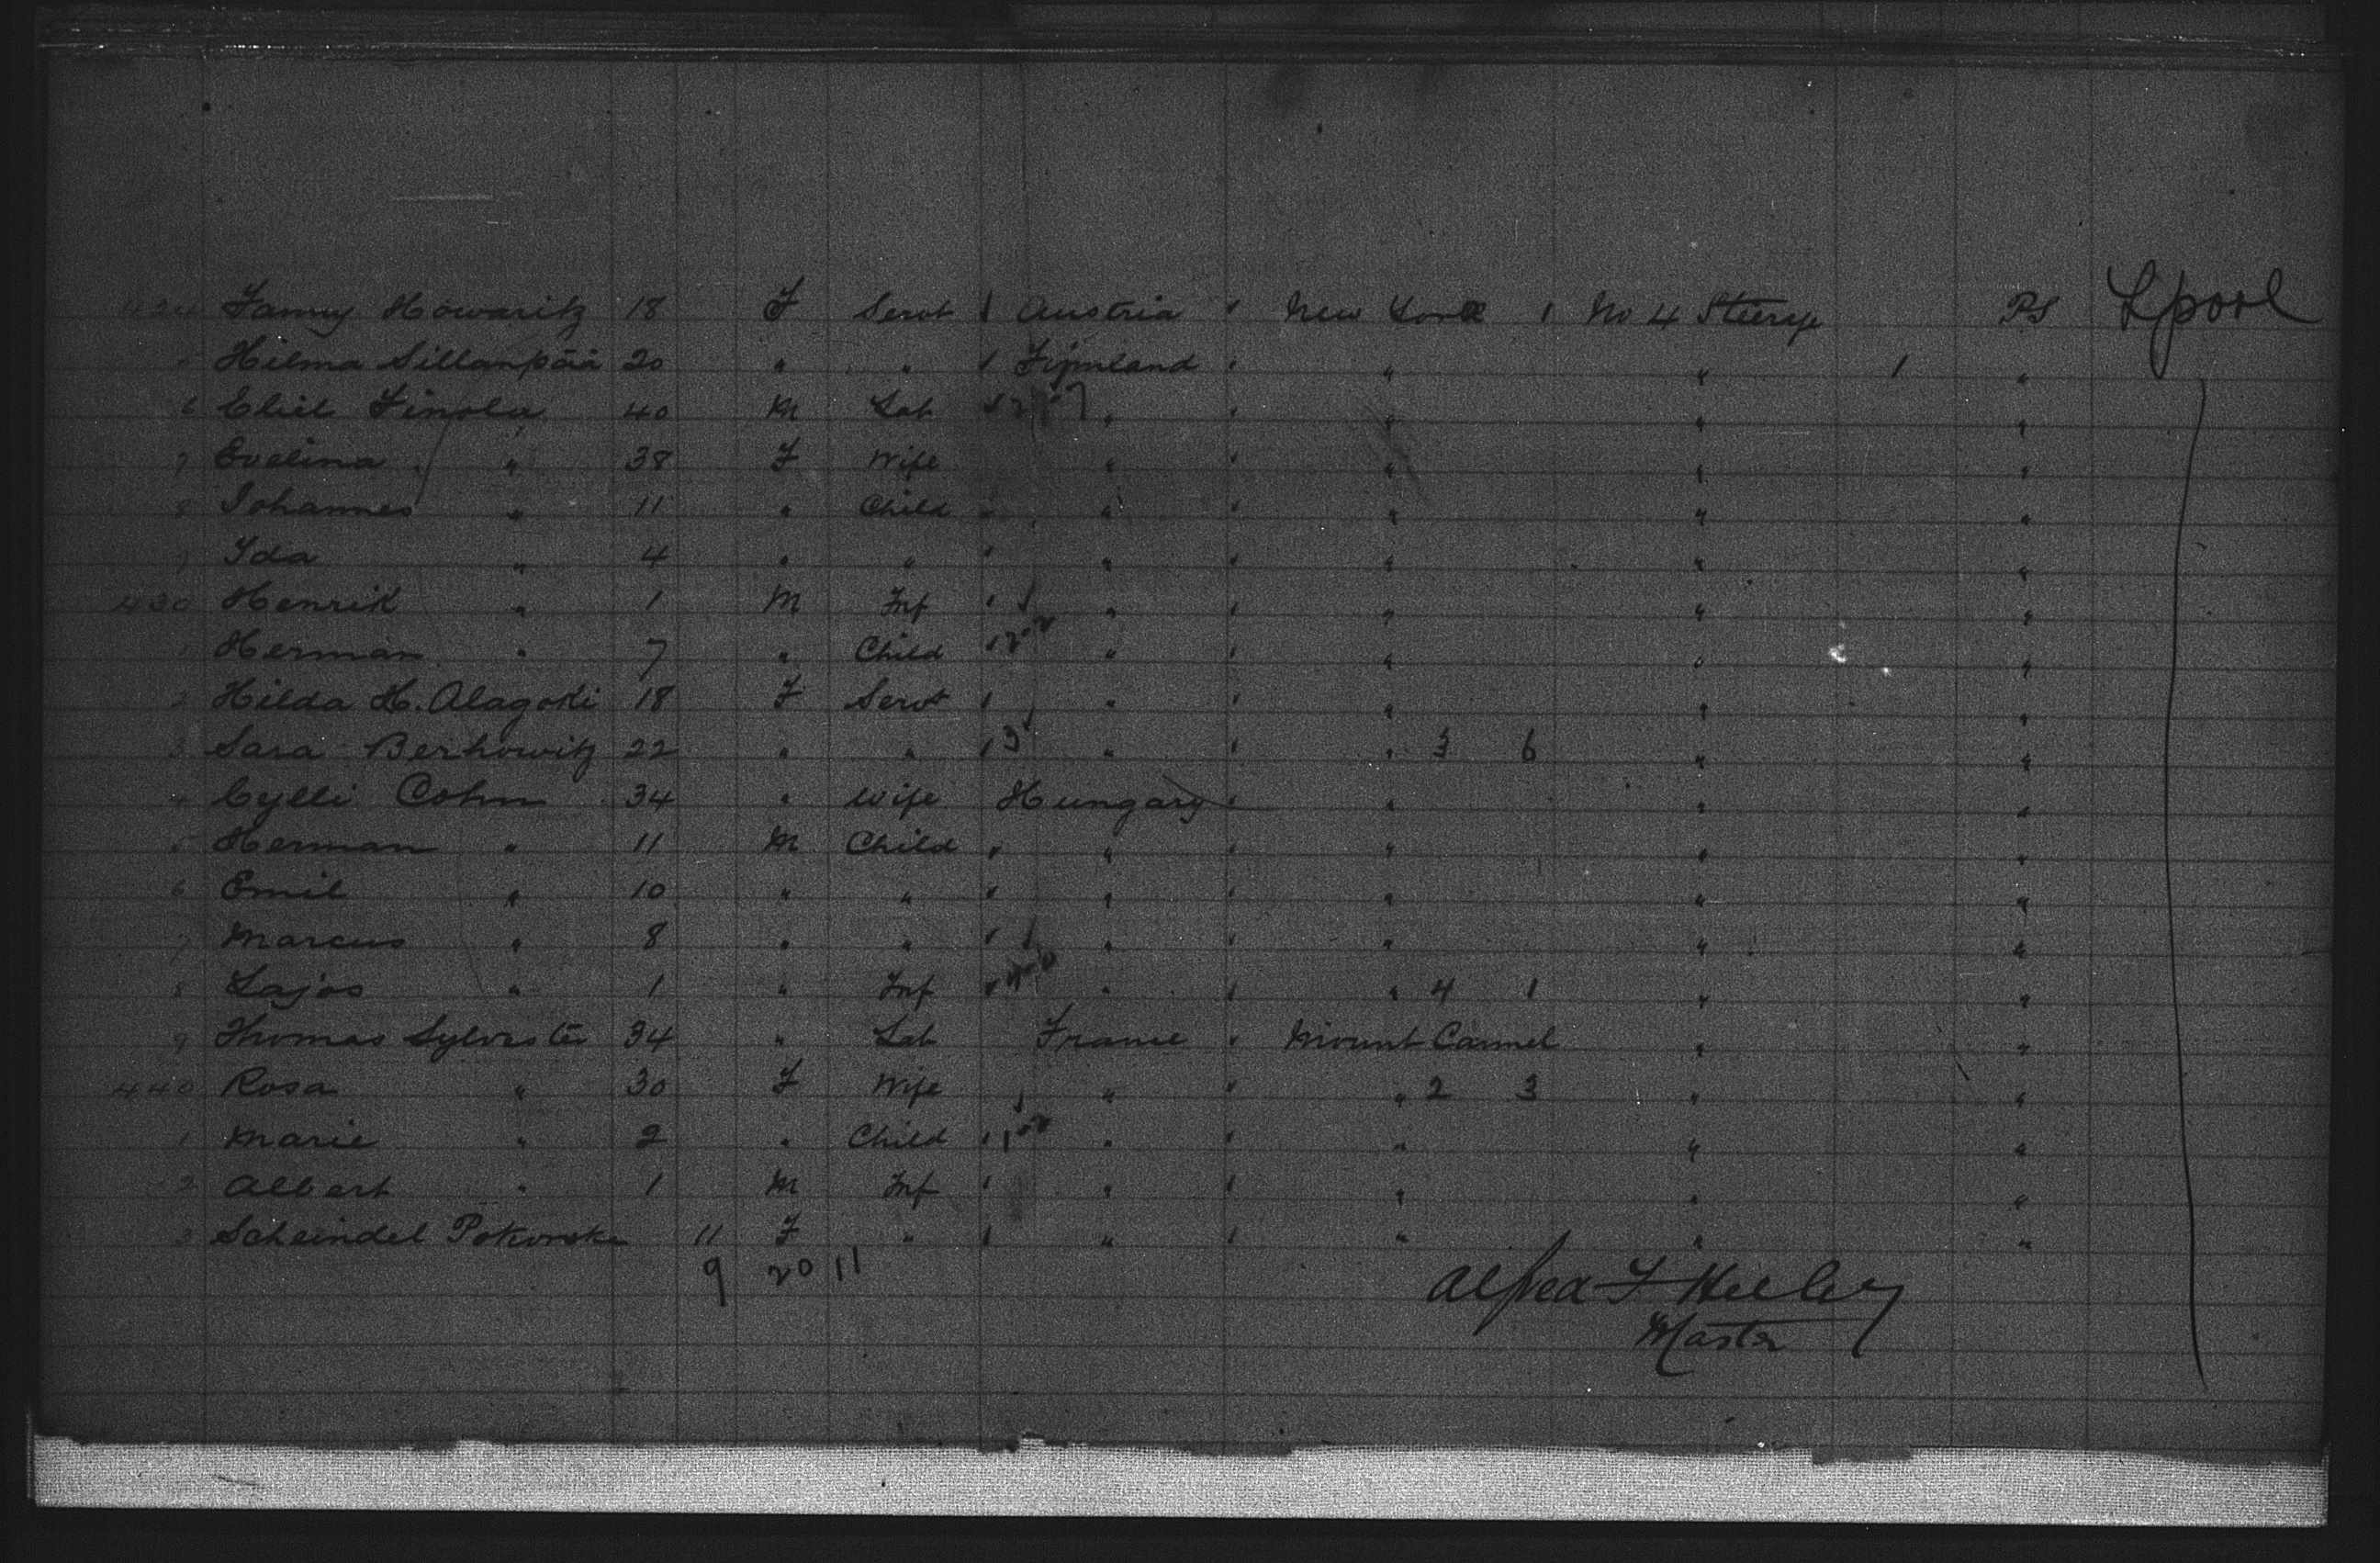 424 Fanny Howaritz 18 F Servt 1 Austria " New York 1 No 4 Steerge PS Lpool
5 Hilma Sillanpää 20 " " 1 Finnland " " " 1 "
6 Eliel Finola 40 M Lab " " " " "
7 Evelina " 38 F Wife " " " " "
8 Johannes " 11 " Child " " " " " "
9 Ida " 4 " " " " " " " "
430 Henrik " 1 M Inf " " " " " "
1 Herman " 7 " Child " " " " " "
2 Hilda H. Alagoski 18 F Servt 1 " " " " "
3 Sara Berkowitz 22 " " 1 3 " " " 3 6 " "
4 Cylli Cohn 34 " Wife Hungary " " " "
5 Herman " 11 M Child " " " " " "
6 Emil " 10 " " " " " " " "
7 Marcus " 8 " " " " " " " "
8 Lajos " 1 " Inf " " " " 4 1 " "
9 Thomas Sylvester 34 " Lab France " Mount Carmel " "
440 Rosa " 30 F Wife " " " 2 3 " "
1 Marie " 2 " Child " " " " " "
2 Albert " 1 M Inf " " " " " "
3 Scheindel 11 F " 1 " " " " "
9 20 11
Alfred F
Master